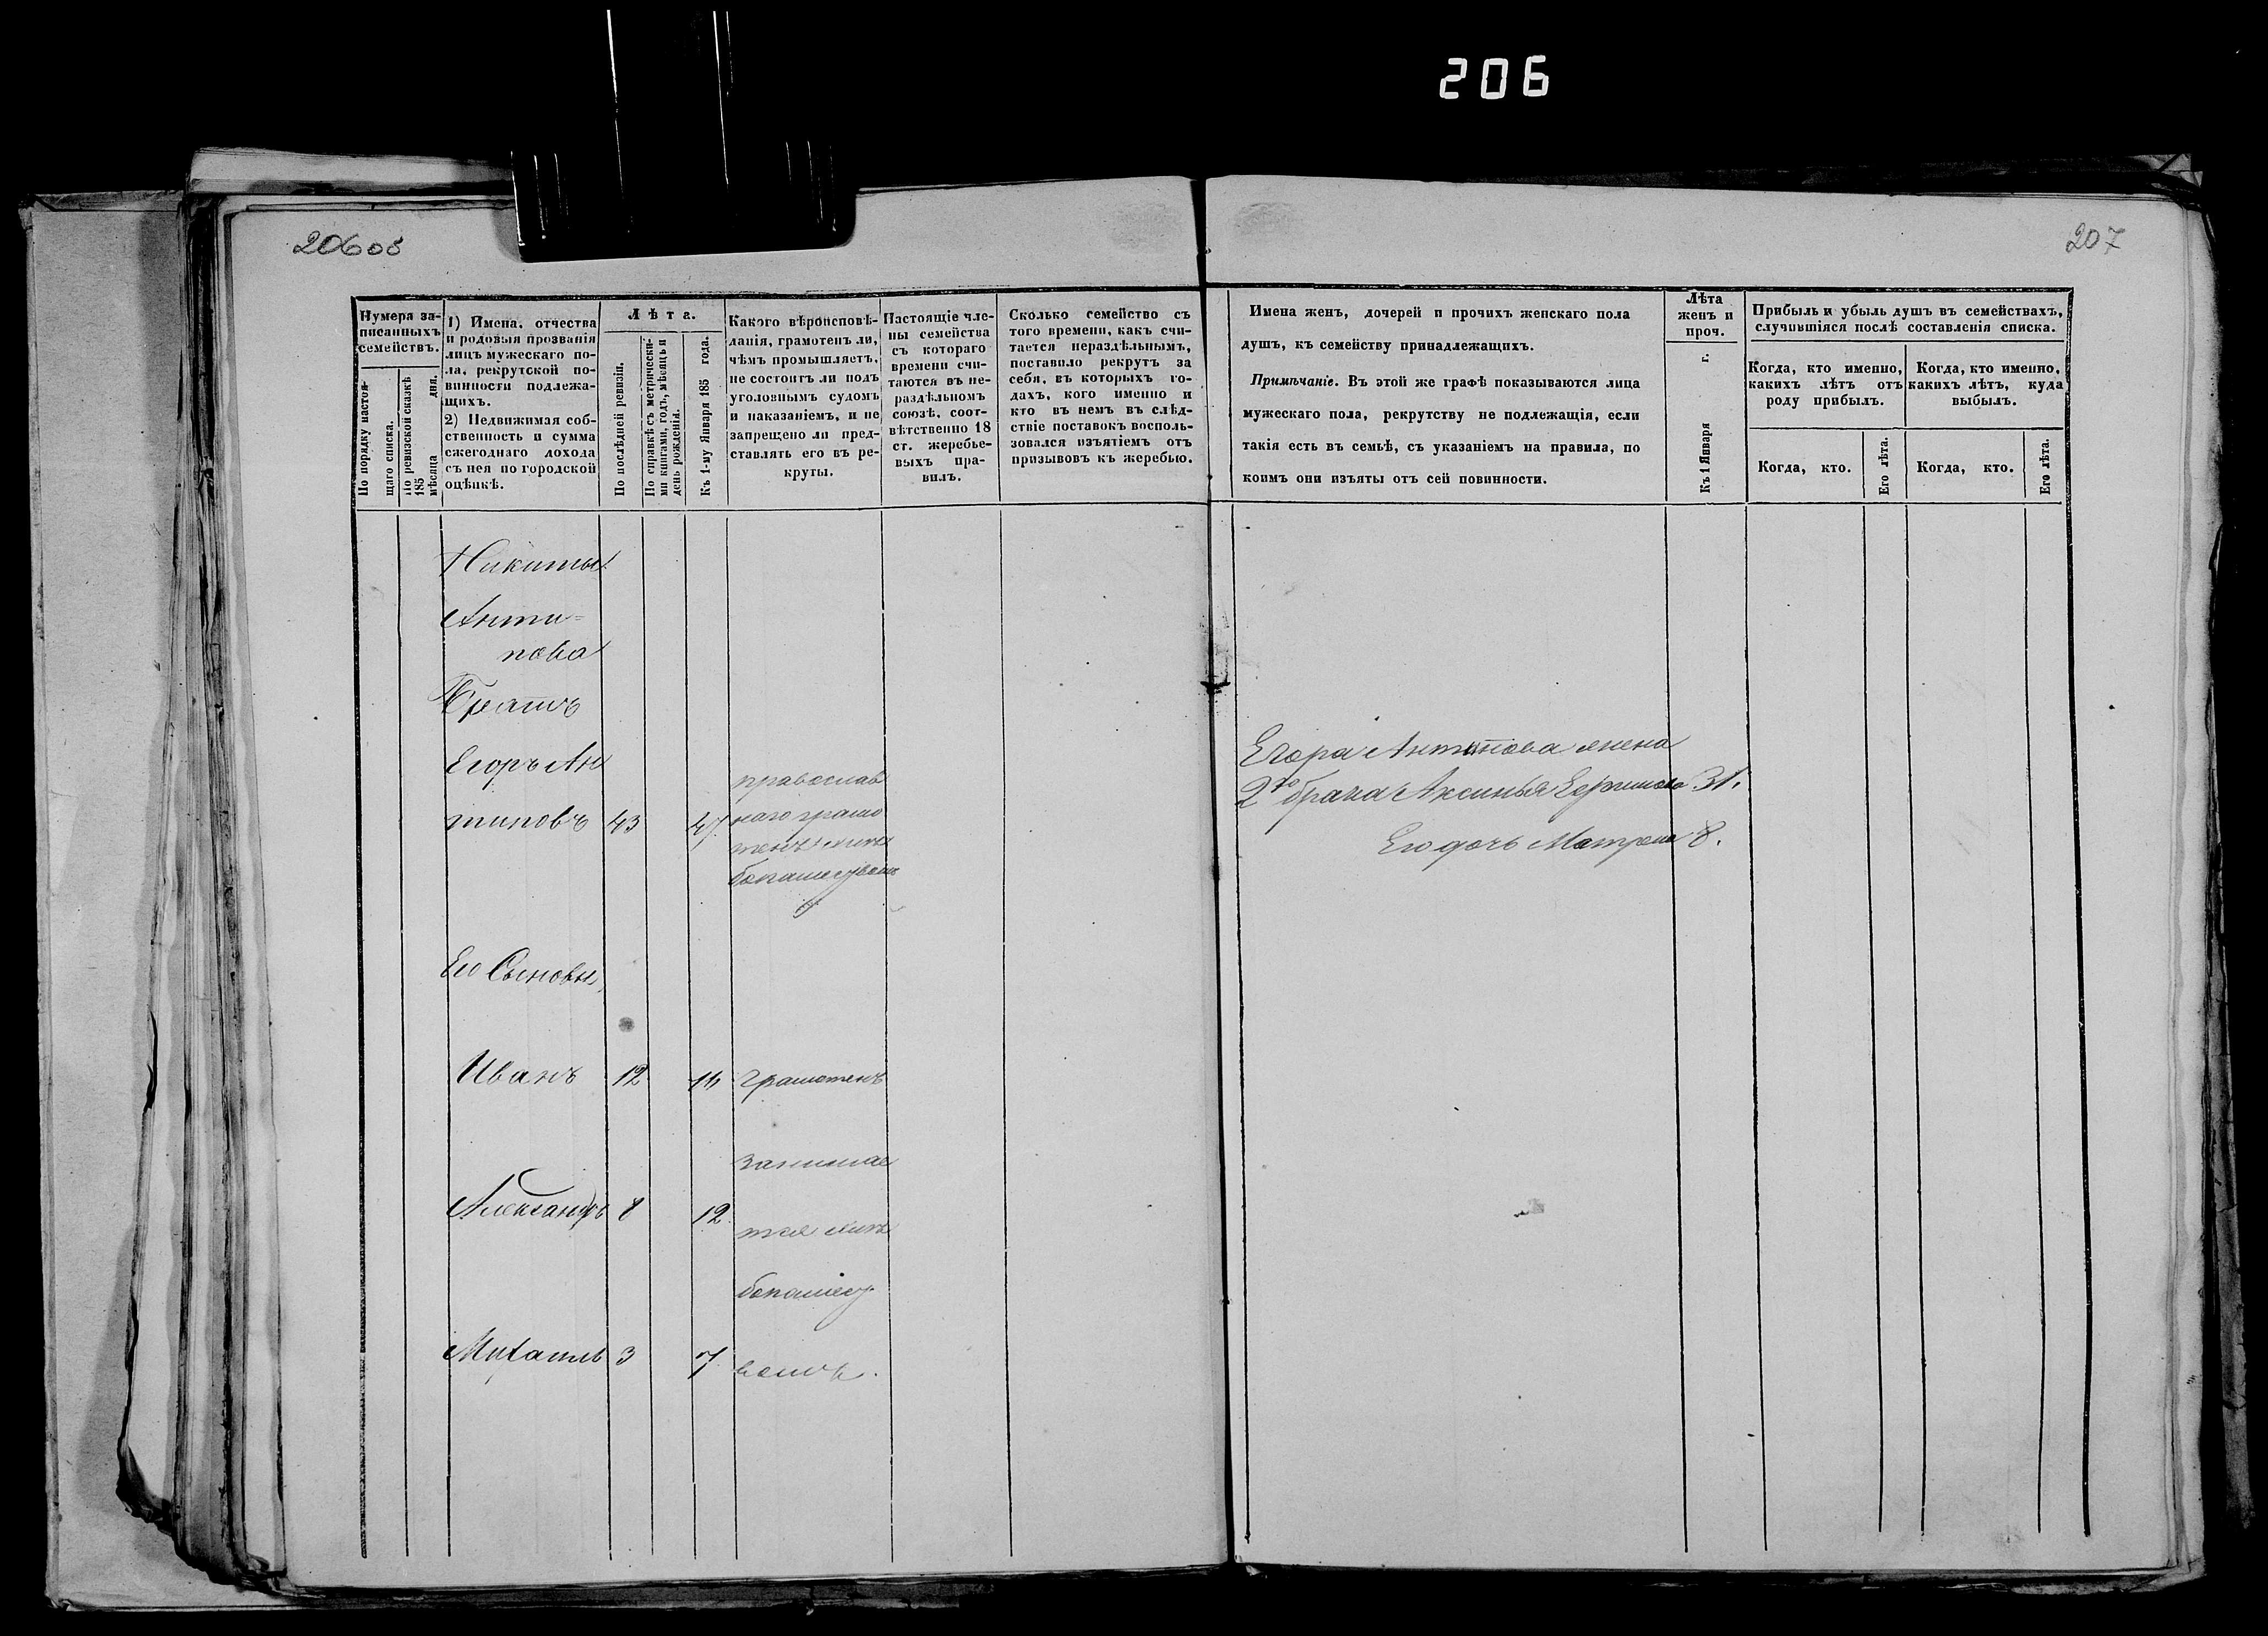 206
206об
207
Нумера за-
писанныхъ
семействъ.
По порядку настоя-
щаго списка.
По ревизской сказкѣ
185 мѣсяца дня.
1) Имена, отчества
и родовыя прозванія
лицъ мужескаго по-
ла, рекрутской по-
винности подлежа-
щихъ.
2) Недвижимая соб-
ственность и сумма
ежегоднаго дохода
съ нея по городской
оцѣнкѣ.
Лѣта.
По послѣдней ревизіи.
По справкѣ съ метрически-
ми книгами, годъ, мѣсяцъ и
день рожденія.
Къ 1-му Января 185 года.
Какого вѣроисповѣ-
данія, грамотенъ ли,
чѣмъ промышляетъ,
не состоитъ ли подъ
уголовнымъ судомъ
и наказаніемъ, и не
запрещено ли пред-
ставлять его въ ре-
круты.
Настоящіе чле-
ны семейства
съ котораго
времени счи-
таются въ не-
раздѣльномъ
союзѣ, соот-
вѣтственно 18
ст. жеребье-
выхъ пра-
вилъ.
Сколько семейство съ
того времени, какъ счи-
тается нераздѣльнымъ,
поставило рекрутъ за
себя, въ которыхъ го-
дахъ, кого именно и
кто въ немъ въ слѣд-
ствіе поставокъ восполь-
зовался изъятіемъ отъ
призывовъ къ жеребью.
Имена женъ, дочерей и прочихъ женскаго пола
душъ, къ семейству принадлежащихъ.
Примѣчаніе. Въ этой же графѣ показываются лица
мужескаго пола, рекрутству не подлежащія, если
такія есть въ семьѣ, съ указаніемъ на правила, по
коимъ они изъяты отъ сей повинности.
Лѣта
женъ и
проч.
Къ 1 Января г.
Прибыль и убыль душъ въ семействахъ,
случившіяся послѣ составленія списка.
Когда, кто именно,
какихъ лѣтъ отъ
роду прибылъ.
Когда, кто именно,
какихъ лѣтъ, куда
выбылъ.
Когда, кто.
Его лѣта.
Когда, кто.
Его лѣта.
Никиты
Анти=
пова
Братъ
Егоръ Ан
типовъ 43 47
православ
наго грамо
тенъ
Егора Антипова жена
2го брака Аксинья Ефимова 31.
Его дочь Матрена 8.
Его Сыновья
Иванъ 12 16 грамотенъ
занимае
Александръ 8 12
тся
Михаилъ 3 7